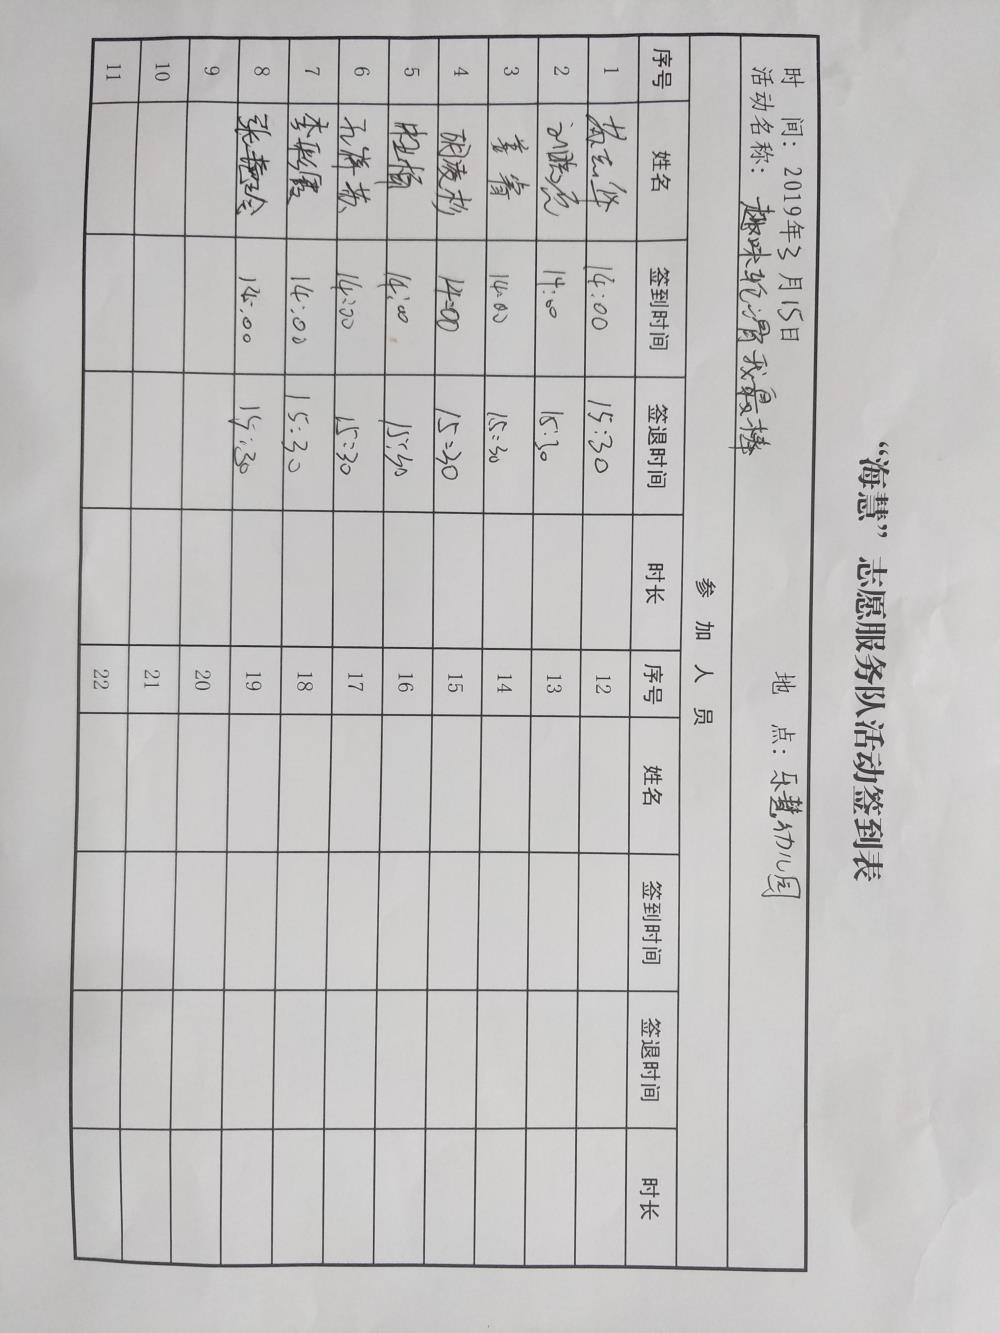 “海慧”志愿服务队活动签到表
时 间：2019年3月15日 地 点：乐慧幼儿园
活动名称：趣味轮滑我最棒
参 加 人 员
序号 姓名 签到时间 签退时间 时长 序号 姓名 签到时间 签退时间 时长
1 14:00 15:30 12
2 刘晓亮 14:00 15:30 13
3 姜睿 14:00 15:30 14
4 胡凌杉 14:00 15:30 15
5 14:00 15:30 16
6 孔祥苏 14:00 15:30 17
7 李彩霞 14:00 15:30 18
8 张静玲 14:00 15:30 19
9 20
10 21
11 22